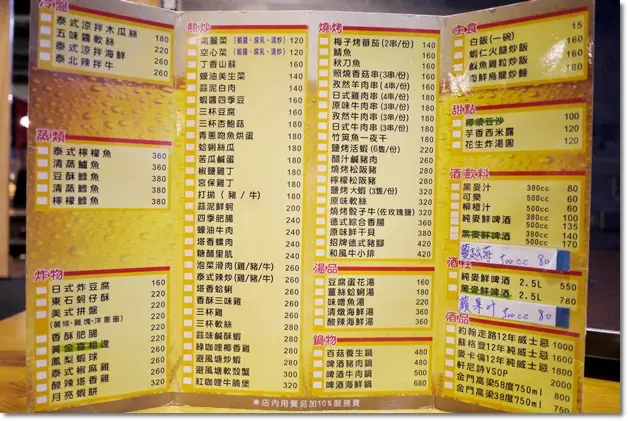 冷盤
泰式涼拌木瓜絲 160
五味醬軟絲 180
泰式涼拌海鮮 220
泰北辣拌牛 260
蒸類
泰式檸檬魚 360
清蒸鱸魚 360
豆酥鱈魚 360
清蒸鱈魚 360
檸檬鱈魚 360
炸物
日式炸豆腐
東石蚵仔酥
美式拼盤
(薯條、雞塊、洋蔥圈)
香酥肥腸
黃金喜相逢
鳳梨蝦球
泰式椒麻雞
酸辣塔香雞
月亮蝦餅 320
熱炒
高麗菜(蝦醬、腐乳、清炒) 120
空心菜(蝦醬、腐乳、清炒) 120
丁香山蘇 160
蠔油美生菜 140
蒜泥白肉
蝦醬四季豆
三杯豆腐
三杯杏鮑菇
青蔥吻魚烘蛋 180
蛤蜊絲瓜 180
苦瓜鹹蛋 180
椒鹽雞丁 180
宮保雞丁 180
打拋(豬/牛) 180
蒜泥鮮蚵 200
四季肥腸 240
蠔油牛肉 240
塔香螺肉 240
糖醋里肌 240
泡菜滑肉(雞/豬/牛) 260
泰式辣炒(雞/豬/牛) 260
塔香蛤蜊 260
香酥三味雞 260
三杯雞 260
三杯軟絲 260
蒜味鹹酥蝦 260
綠咖哩椰香雞 260
避風塘炒蝦 280
避風塘軟殼蟹 300
紅咖哩牛腩煲 320
燒烤
梅子烤番茄(2串/份) 140
鯖魚 160
秋刀魚 160
照燒香菇串(3串/份) 160
孜然羊肉串(4串/份) 160
日式雞肉串(4串/份) 160
原味牛肉串(3串/份) 180
孜然牛肉串(3串/份) 180
日式牛肉串(3串/份) 180
竹筴魚一夜干 180
鹽烤活蝦(6隻/份) 220
醋汁鹹豬肉 260
燒烤松阪豬 280
檸檬松阪豬 280
鹽烤大蝦(3隻/份) 320
原味軟絲 320
燒烤骰子牛(佐玫瑰鹽) 320
德式綜合香腸 360
原味鮮干貝 380
招牌德式豬腳 420
和風牛小排 420
湯品
豆腐蛋花湯 180
薑絲蛤蜊湯 180
味噌魚湯 220
清燉海鮮湯 240
酸辣海鮮湯 240
鍋物
百菇養生鍋 480
啤酒豬肉鍋 480
啤酒牛肉鍋 500
啤酒海鮮鍋 680
主食
白飯(一碗) 15
蝦仁火腿炒飯
鹹魚雞粒炒飯
海鮮烏龍炒麵
甜點
椰漿豆沙 100
芋香西米露 120
花生炸湯圓 120
酒 飲料
黑麥汁 380cc 60
可樂 500cc 60
柳橙汁 500cc 100
純麥鮮啤酒 380cc 135
500cc
黑麥鮮啤酒 380cc 140
500cc 170
蔓越莓 500cc 80
酒柱
純麥鮮啤酒 2.5L 550
黑麥鮮啤酒 2.5L 780
蘋果汁 500cc 80
酒品
約翰走路12年威士忌 1300
蘇格登12年純威士忌
麥卡倫12年純威士忌
軒尼詩VSOP
金門高梁58度750ml
金門高梁38度750ml
※店內用餐另加10%服務費